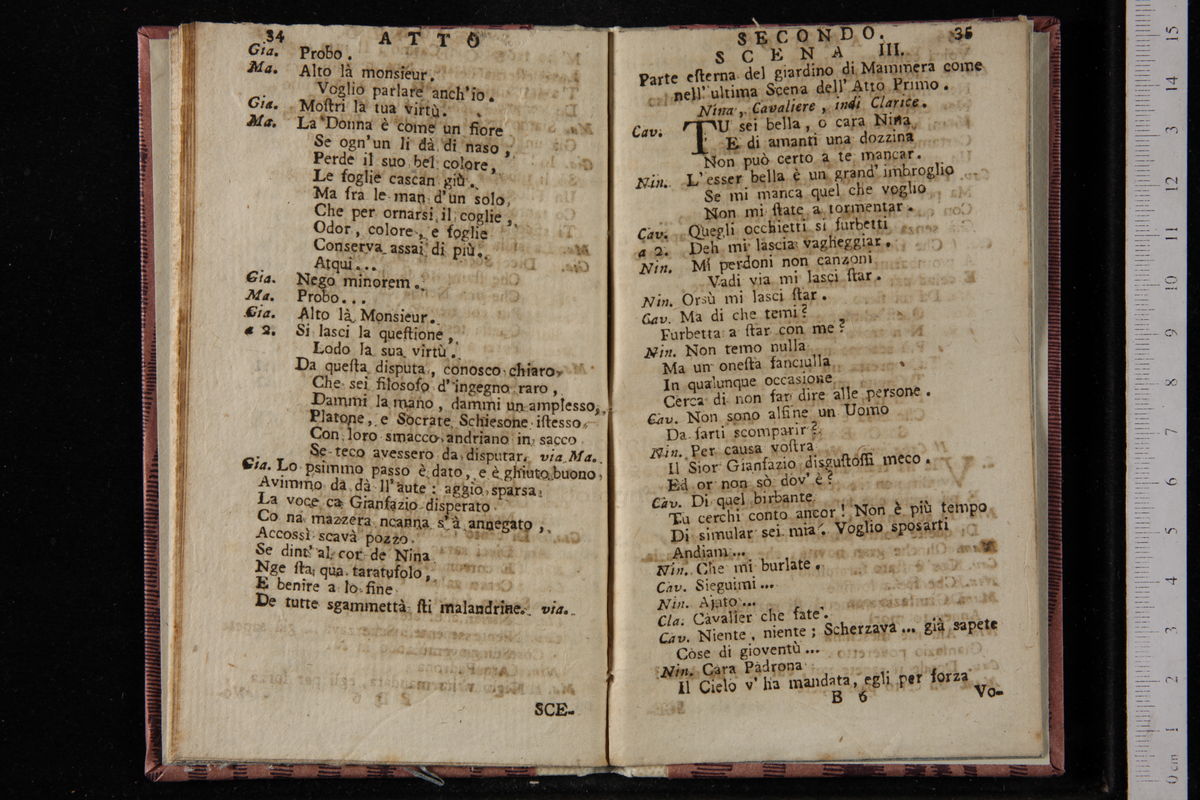 34 ATTO
Gia. Probo.
Ma. Alto là monsieur.
Voglio parlare anch'io.
Gia. Moſtri la tua virtù.
Ma. La Donna è come un fiore
Se ogn'un li dà di naso,
Perde il suo bel colore,
Le foglie cascan giù.
Ma fra le man d'un solo,
Che per ornarsi il coglie,
Odor, colore, e foglie
Conserva assai di più.
Atqui...
Gia. Nego minorem.
Ma. Probo...
Gia. Alto là Monsieur.
a 2. Si lasci la queſtione,
Lodo la sua virtù.
Da queſta disputa, conosco chiaro,
Che sei filosofo d'ingegno raro,
Dammi la mano, dammi un amplesso,
Platone, e Socrate Schiesone iſtesso
Con loro smacco andriano in sacco
Se teco avessero da disputar. via Ma.
Gia. Lo psimmo passo è dato, e è ghiuto buono,
Avimmo da dà ll'aute: aggio sparsa
La voce ca Gianfazio disperato
Co na mazzera ncanna s'à annegato,
Accossì scavà pozzo.
Se dint' al cor de Nina
Nge ſta qua taratufolo,
E benire a lo fine
De tutte sgammettà ſti malandrine. via.
SCE-
SECONDO. 35
SCENA III.
Parte eſterna del giardino di Mammera come
nell'ultima Scena dell'Atto Primo.
Nina, Cavaliere, indi Clarice.
Cav. TU sei bella, o cara Nina
E di amanti una dozzina
Non può certo a te mancar.
Nin. L'esser bella è un grand'imbroglio
Se mi manca quel che voglio
Non mi ſtate a tormentar.
Cav. Quegli occhietti si furbetti
a 2. Deh mi lascia vagheggiar.
Nin. Mi perdoni non canzoni
Vadi via mi lasci ſtar.
Nin. Orsù mi lasci ſtar.
Cav. Ma di che temi?
Furbetta a ſtar con me?
Nin. Non temo nulla
Ma un oneſta fanciulla
In qualunque occasione
Cerca di non far dire alle persone.
Cav. Non sono alfine un Uomo
Da farti scomparir?
Nin. Per causa voſtra
Il Sior Gianfazio disguſtoſſi meco.
Ed or non sò dov'è?
Cav. Di quel birbante
Tu cerchi conto ancor! Non è più tempo
Di simular sei mia. Voglio sposarti
Andiam...
Nin. Che mi burlate.
Cav. Sieguimi...
Nin. Ajuto...
Cla. Cavalier che fate.
Cav. Niente, niente; Scherzava... già sapete
Cose di gioventù...
Nin. Cara Padrona
Il Cielo v'ha mandata, egli per forza
B 6 Vo-